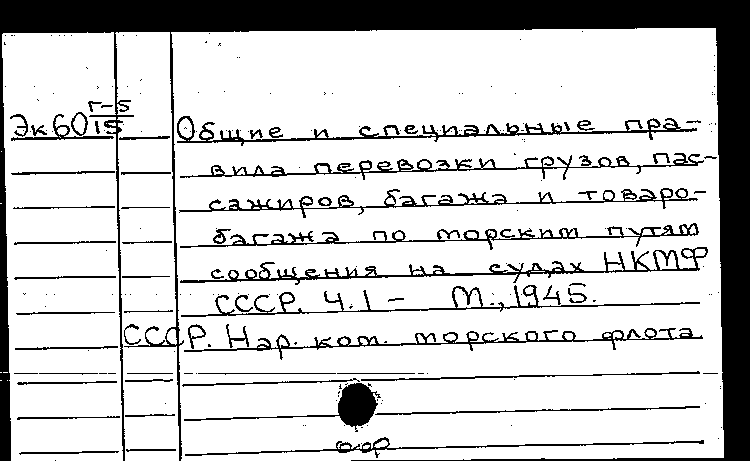 Эк60 Г-5/15
Общие и специальные пра-
вила перевозки грузов, пас-
сажиров, багажа и товаро-
багажа по морским путям
сообщения на судах НКМФ
СССР. Ч.1 - М., 1945.
СССР. Нар. ком. морского флота